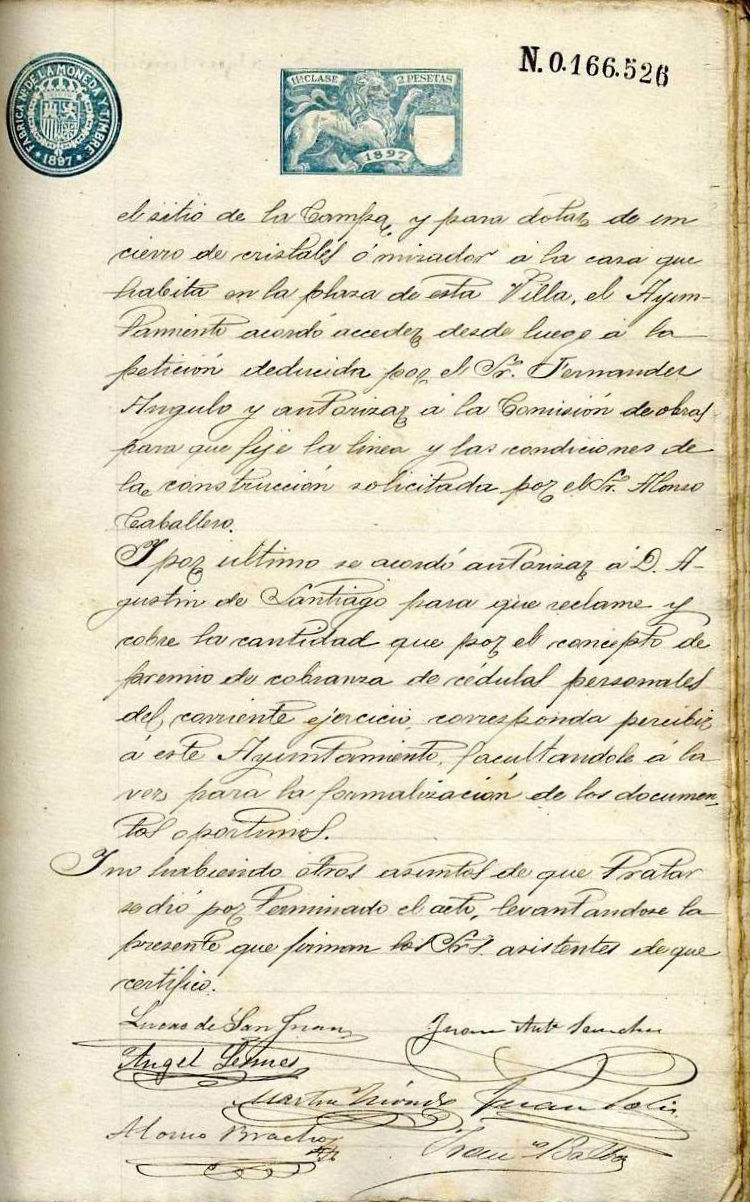 N.0.166.526
FABRICA Nal DE LA MONEDA Y TIMBRE
* 1897 *
11ª CLASE 2 PESETAS
1897
el sitio de la Campa, y para dotar de un
cierro de cristales ó mirador a la casa que
habita en la plaza de esta Villa, el Ayun-
tamiento acordó acceder desde luego á la
petición deducida por el Sr. Fernandez
Angulo y autorizar á la Comisión de obras
para que fije la linea y las condiciones de
la construcción solicitada por el Sr. Alonso
Caballero.
Y por ultimo se acordó autorizar á D. A-
gustin de Santiago para que reclame y
cobre la cantidad que por el concepto de
premio de cobranza de cédulas personales
del corriente ejercicio, corresponda percibir
á este Ayuntamiento, facultandole á la
vez para la formalización de los documen-
tos oportunos.
Y no habiendo otros asuntos de que tratar
se dió por terminado el acto, levantandose la
presente que firman los Srs. asistentes de que
certifico.
Lucas de San Juan
Juan Antº Sanchez
Angel
Martin
Juan Solis
Alonso Bracho
Franco Balba